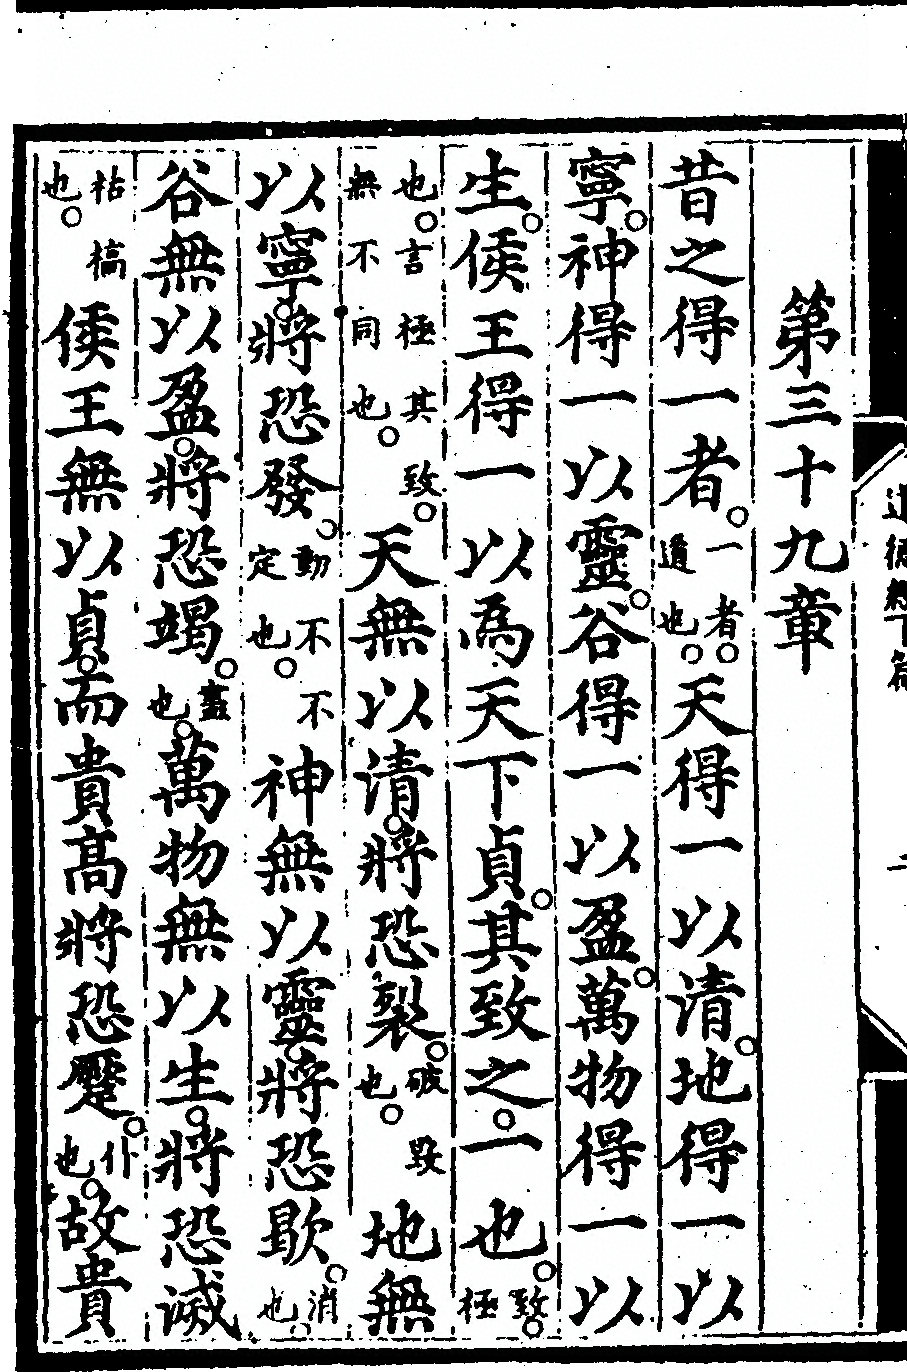 道德經下篇 二
第三十九章
昔之得一者。一者。道也。天得一以清。地得一以
寧。神得一以靈。谷得一以盈。萬物得一以
生。侯王得一以為天下貞。其致之。一也。致。極
也。言極其致。無不同也。天無以清。將恐裂。破毀也。地無
以寧。將恐發。動不不定也。神無以靈。將恐歇。消也。
谷無以盈。將恐竭。盡也。萬物無以生。將恐滅
枯槁也。侯王無以貞。而貴高將恐蹷。仆也。故貴